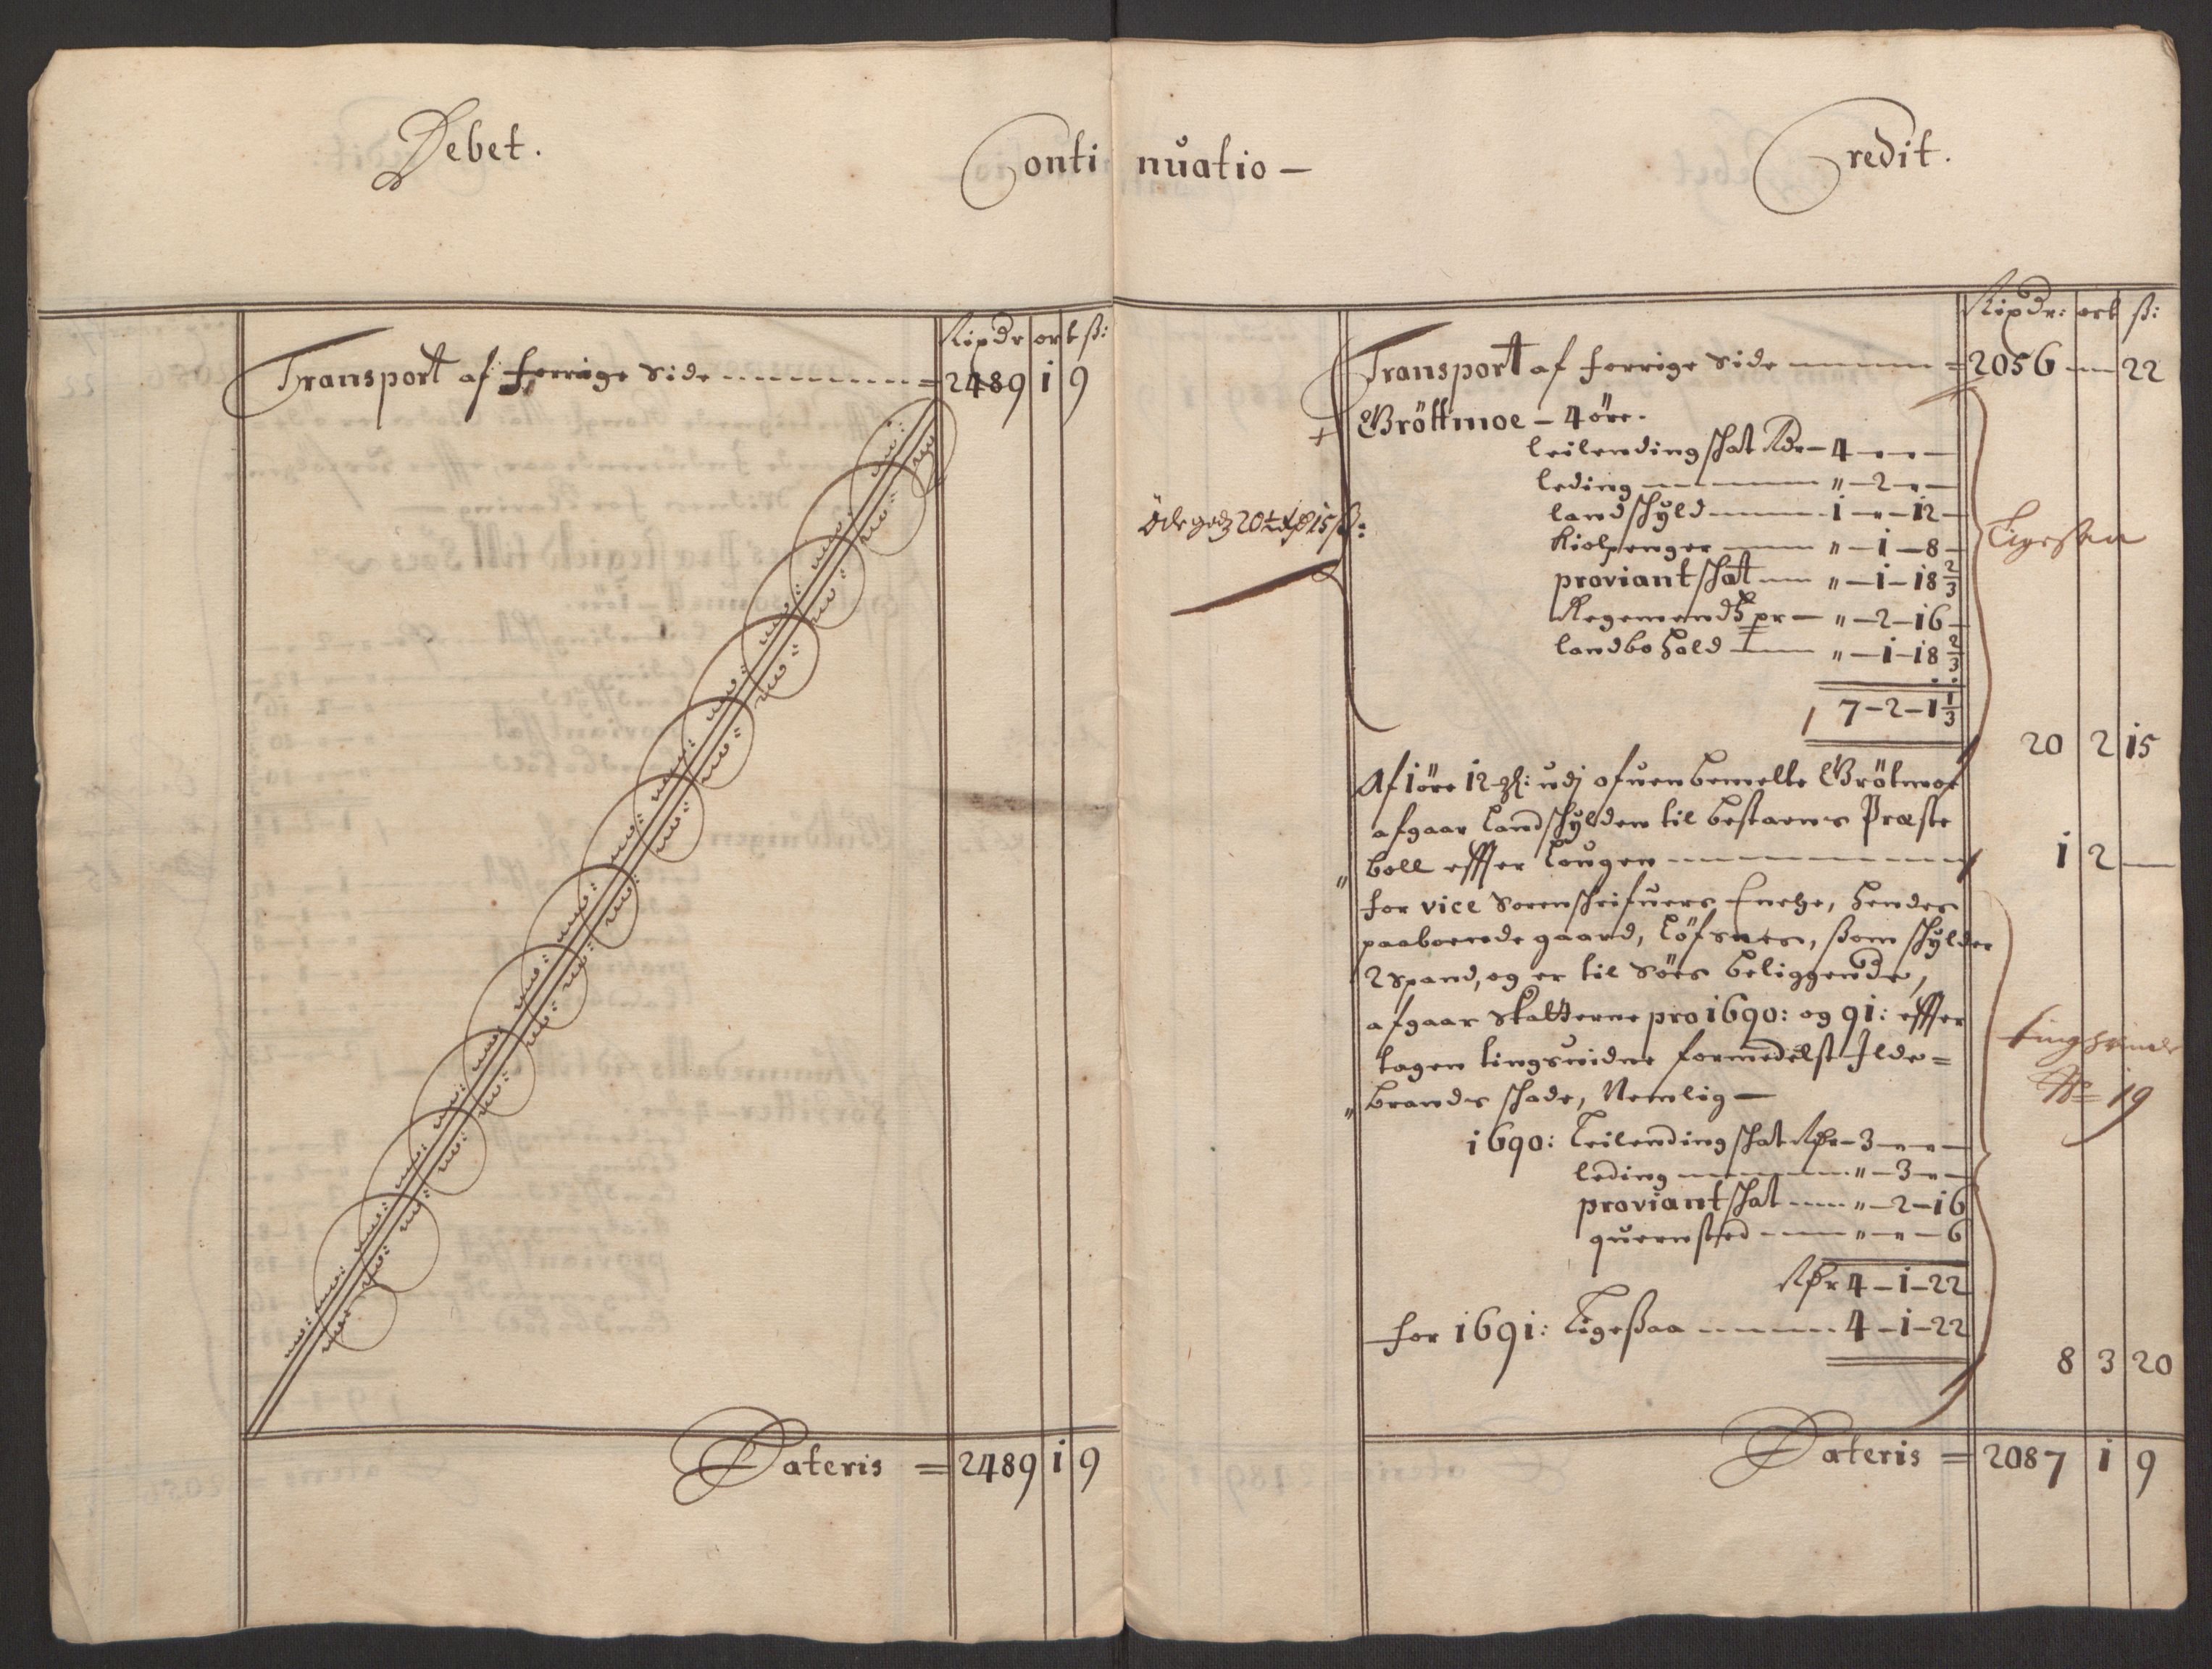 Debet.
Continuatio —
Credit.
Rixdr ort ß:
Transport af forrige Side = 2489 1 9
Lateris = 2489 1 9
Rixdr: ort ß:
Transport af forrige Side = 2056 — 22
Gröttmoe – 4 öre.
leilending skat Rdr – 4 – " – " –
leding " – 2 – " –
landskyld 1 – " – 12 –
Kiolpenger " – 1 – 8 –
proviant skat " – 1 – 18 2/3
Regementz pr – " – 2 – 16 –
landbo hold " – 1 – 18 2/3
7 – 2 – 1 1/3
Ligesaa
20 2 15
Af 1 öre 12 : udj ofuenbemelte Grötmoe
afgaar Landskylden til bestaens Præste
" boll effter Lougen
1 2 —
for vice Sorenskrifuers Encke, hendes
paaboende gaard, Löfsnes, som skylder
2 spand, og er til Söes beliggende,
afgaar Skatterne pro 1690: og 91: effter
tagen tingsvidne formedelst Ilde=
" brands skade, Nemlig —
tingsvinde
No 19
1690: Leilending skat Rdr – 3 – " – " –
leding " – 3 – " –
proviant skat " – 2 – 16
quernsted " – " – 6
Rdr 4 – 1 – 22
for 1691: Ligesaa 4 – 1 – 22
8 3 20
Lateris = 2087 1 9